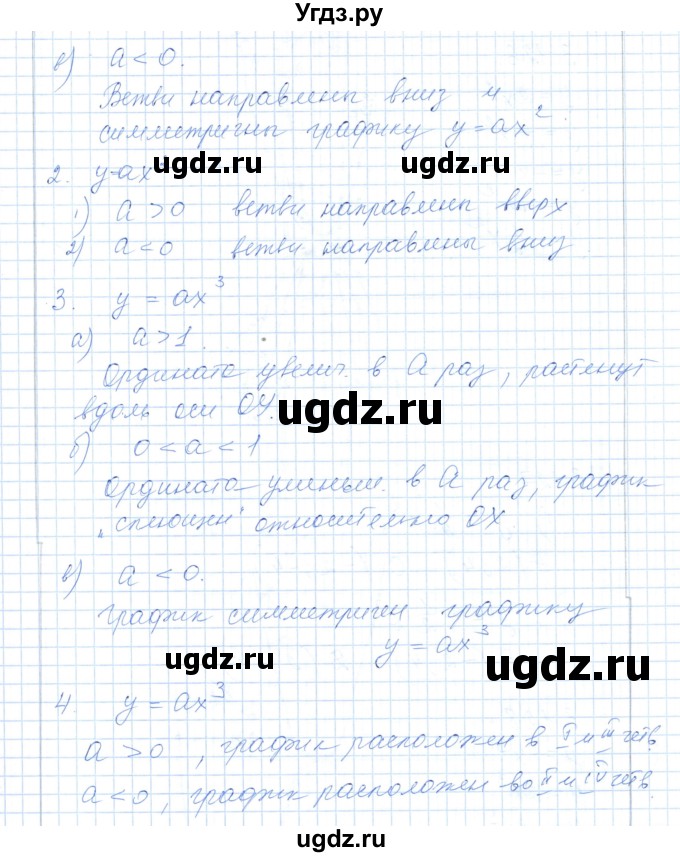 Угдз.ру
в) a < 0.
Ветви направлены вниз и
симметричны графику y = ax².
ugdz.ru ugdz.ru
2. y=ax²
1) a > 0 ветви направлены вверх
2) a < 0 ветви направлены вниз.
3. y = ax³
а) a > 1.
Ордината увелич. в a раз, растянут
вдоль оси ОУ.
ugdz.ru ugdz.ru
б) 0 < a < 1
Ордината уменьш. в a раз, график
„сплющен" относительно ОХ
в) a < 0.
График симметричен графику
y = ax³
ugdz.ru ugdz.ru
4. y = ax³
a > 0, график расположен в I и III четв
a < 0, график расположен во II и IV четв.
ugdz.ru